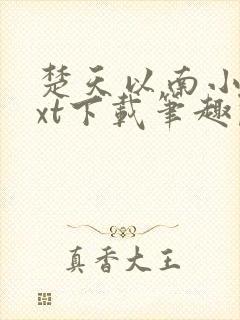 楚天以南小
xt下载笔趣
真香大王